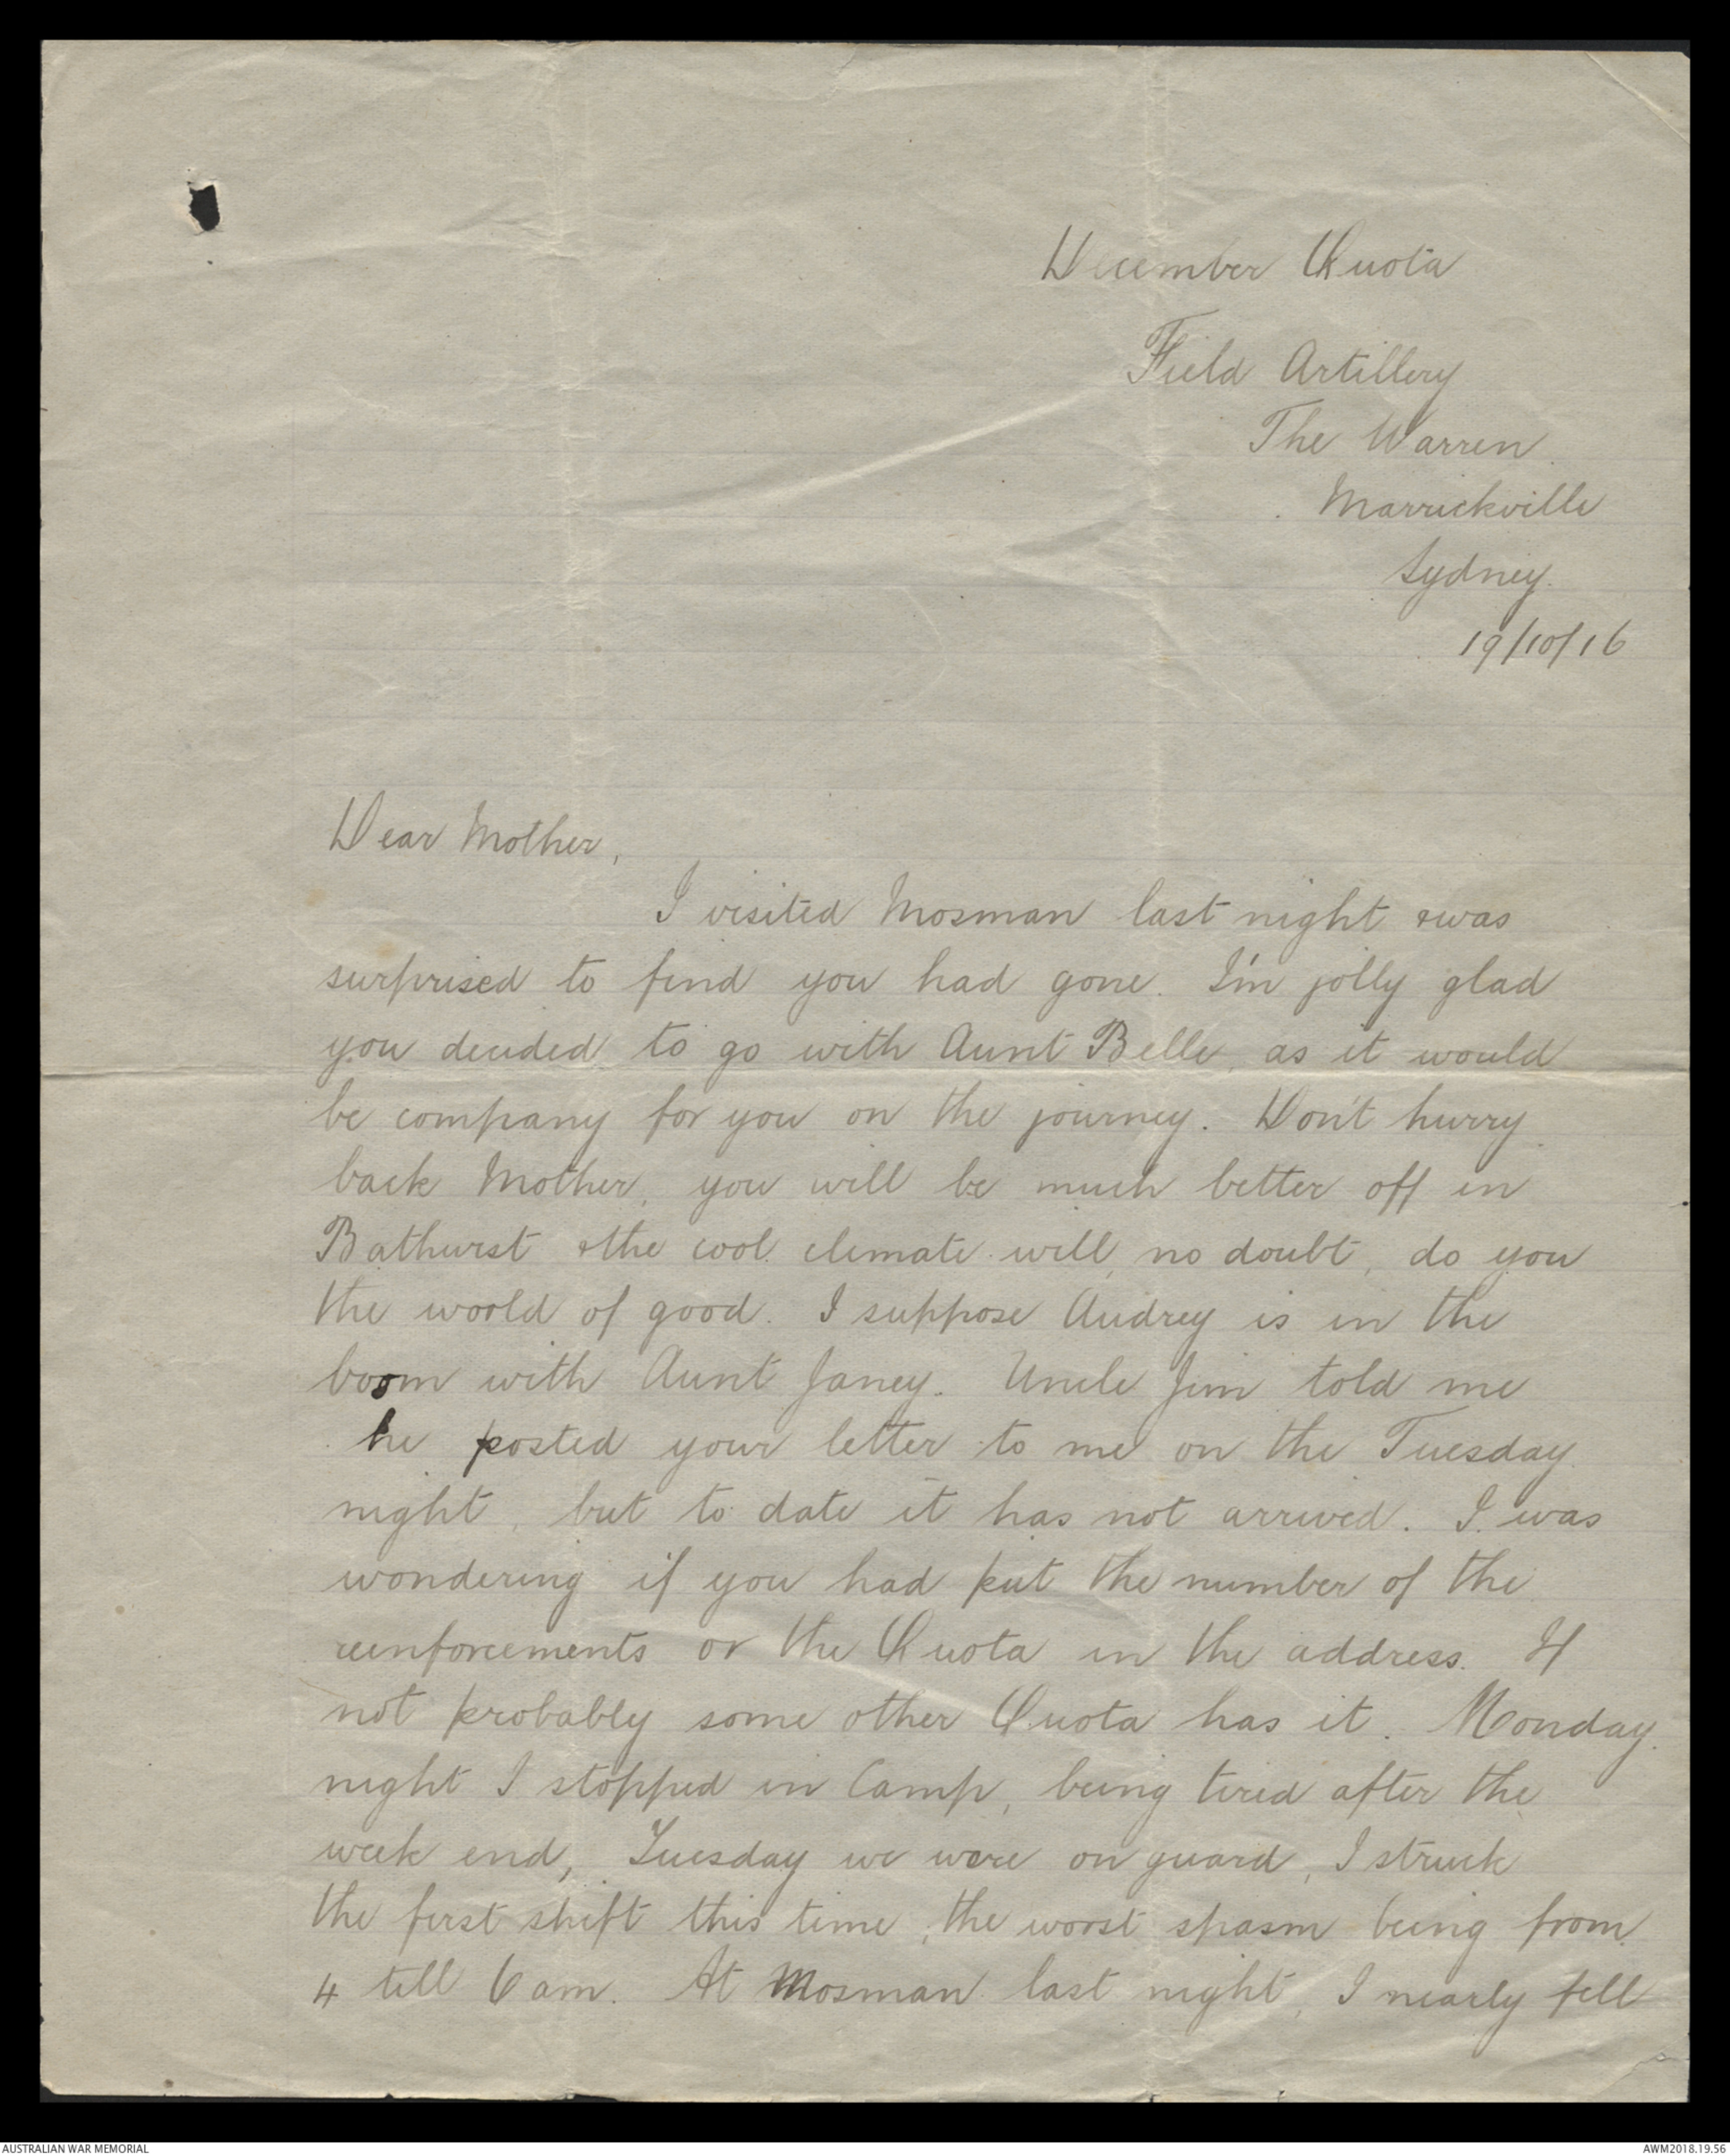 December Quota
Field Artillery
The Warren
Marrickville
Sydney.
19/10/16
Dear Mother,
I visited Mosman last night & was
surprised to find you had gone. I'm jolly glad
you decided to go with Aunt Belle, as it would
be company for you on the journey. Don't hurry
back Mother, you will be much better off in
Bathurst & the cool climate will, no doubt, do you
the world of good. I suppose Audrey is in the
boom with Aunt Janey. Uncle Jim told me
he posted your letter to me on the Tuesday
night, but to date it has not arrived. I was
wondering if you had put the number of the
reinforcements or the Quota in the address. If
not probably some other Quota has it. Monday
night I stopped in Camp, being tired after the
week end, Tuesday we were on guard, I struck
the first shift this time, the worst spasm being from
4 till 6 am. At Mosman last night, I nearly fell
AUSTRALIAN WAR MEMORIAL
AWM2018.19.56